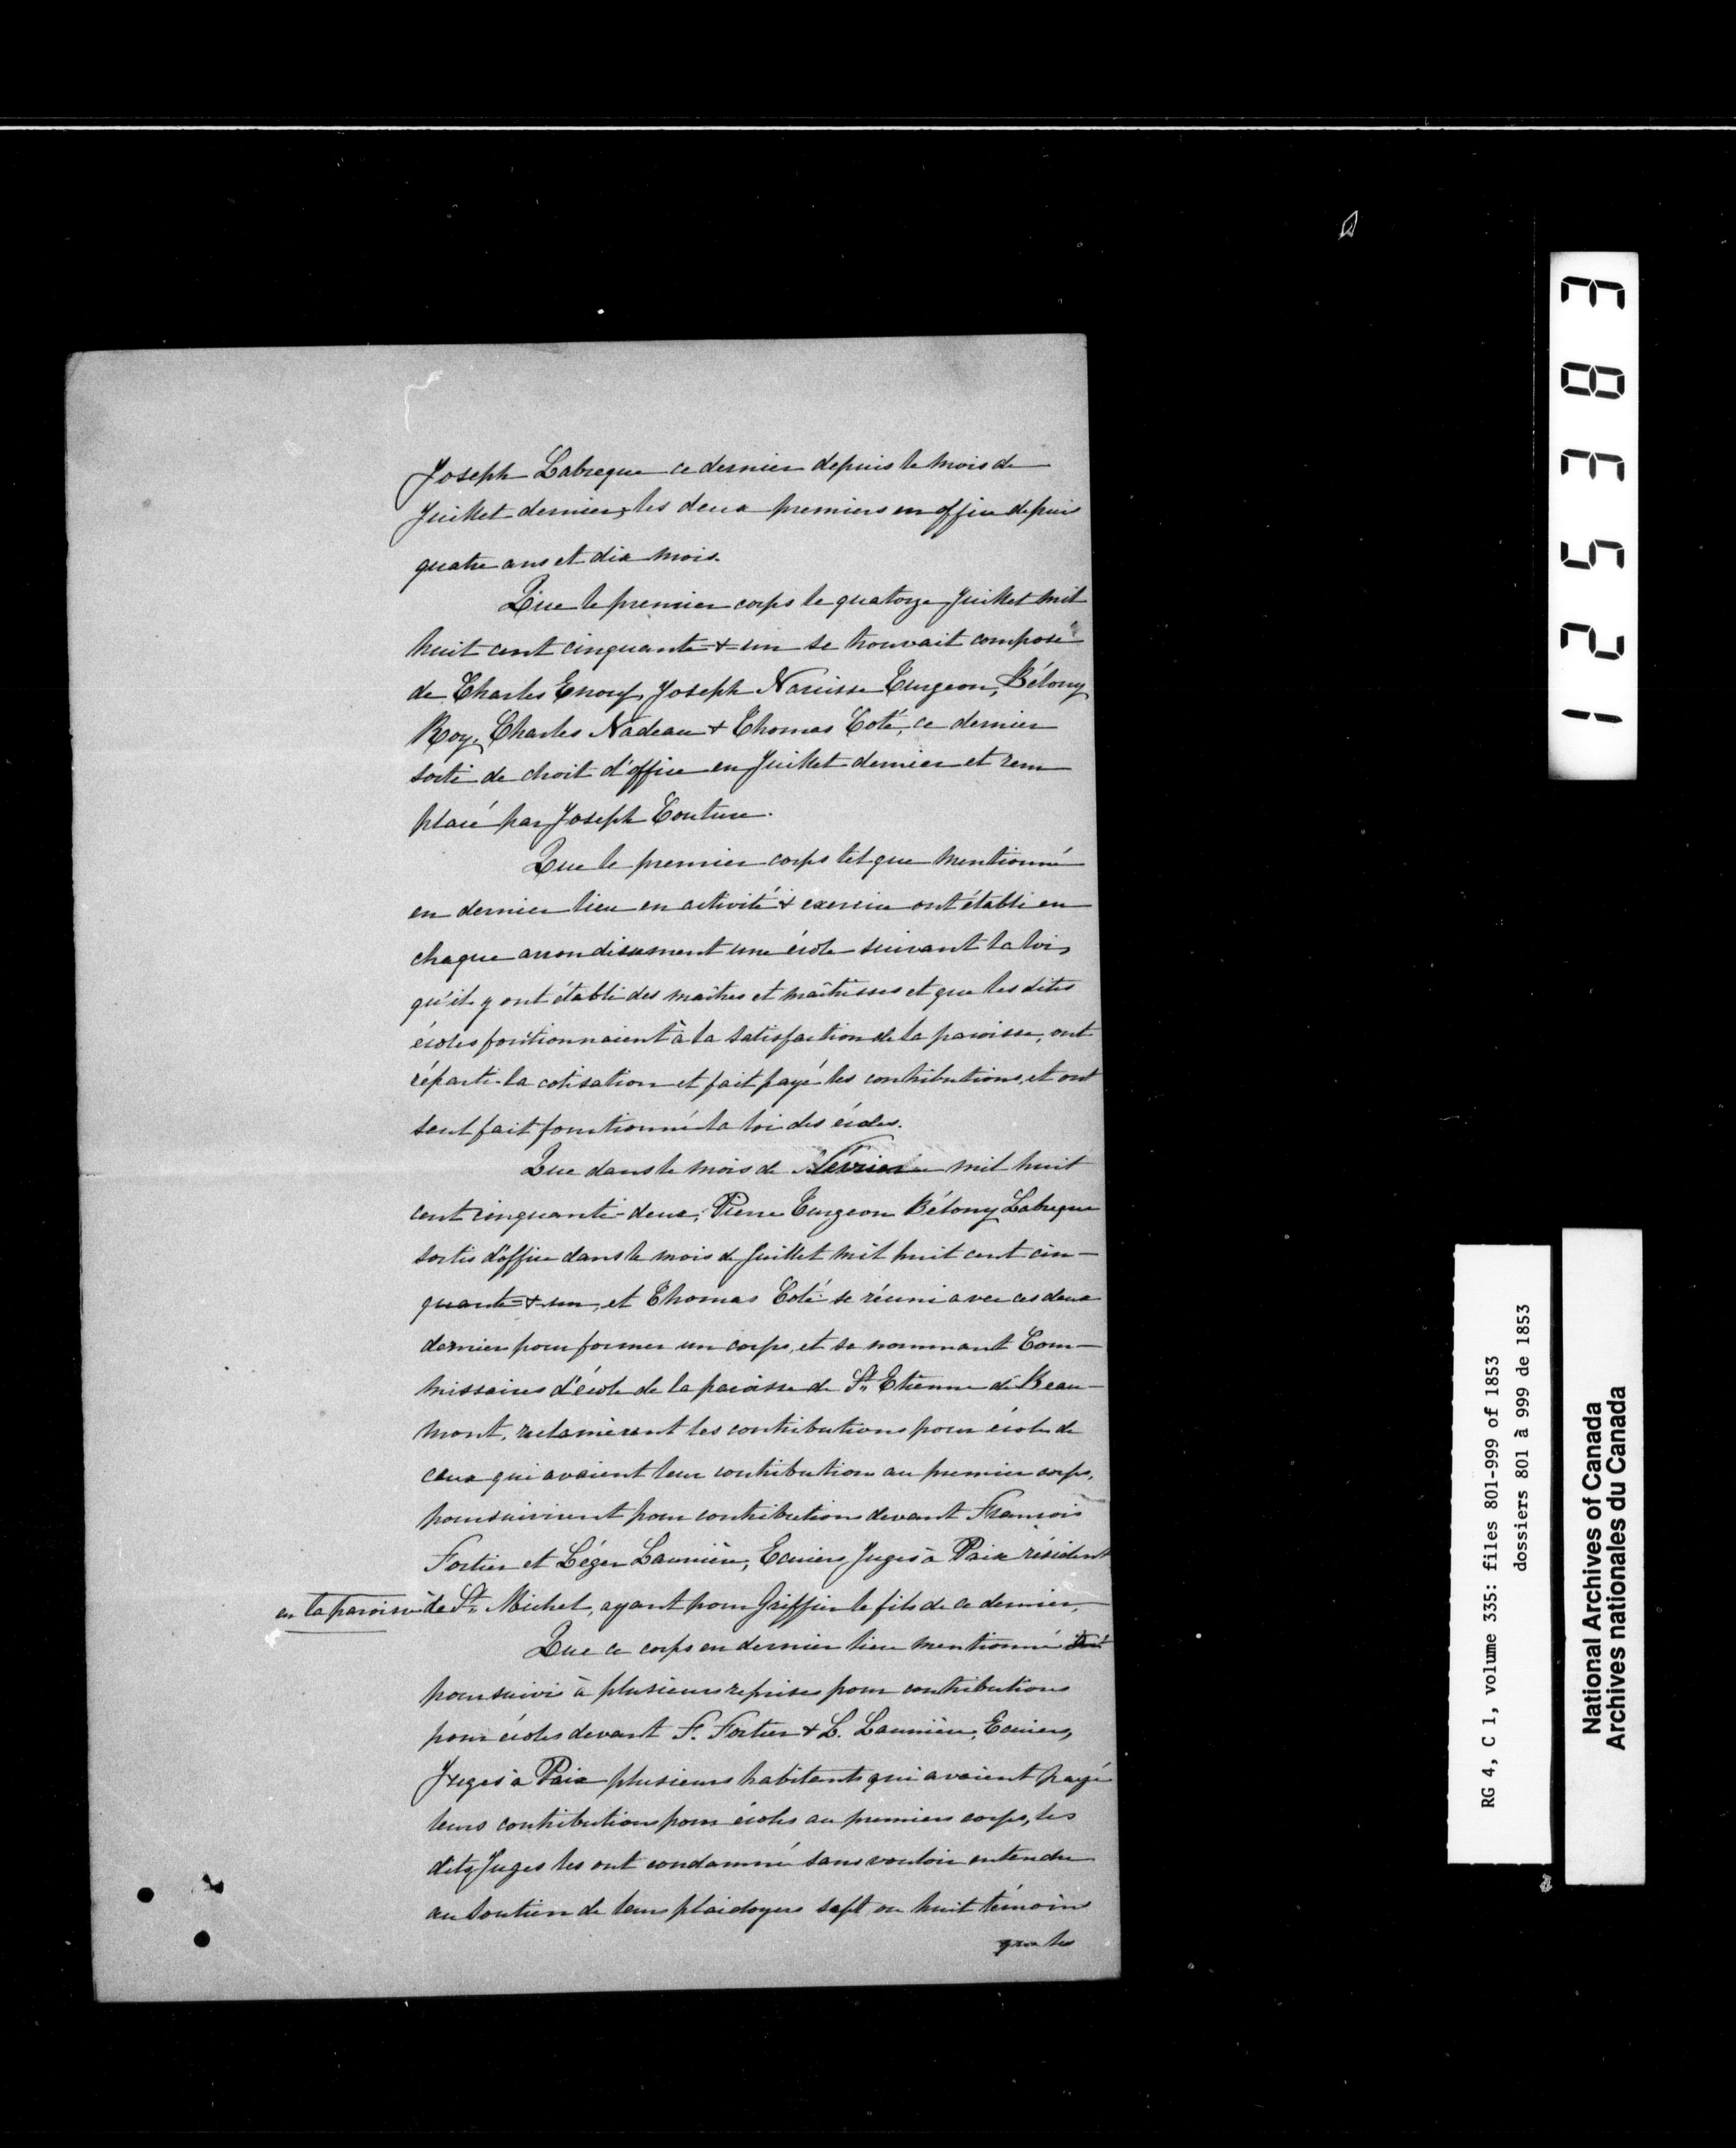 Joseph Labreque ce dernier depuis le mois de
Juillet dernier, les deux premiers en office depuis
quatre ans et dix mois.
Que le premier corps le quatorze Juillet mil
huit cent cinquante & un se trouvait composé
de Charles Enouf, Joseph Narcisse Turgeon, Bélony
Roy, Charles Nadeau & Thomas Coté, ce dernier
sorti de droit d'office en Juillet dernier et rem
placé par Joseph Couture.
Que le premier corps tel que mentionné
en dernier lieu en activité & exercice ont établi en
chaque arrondissement une école suivant la loi,
qu'il y ont établi des maîtres et maîtresses et que les dites
écoles fontionnaient à la satisfaction de la paroisse, ont
réparti la cotisation et fait payé les contributions, et ont
seul fait fonctionné la loi des écoles.
Que dans le mois de Février mil huit
cent cinquante-deux, Pierre Turgeon Bélony Labreque
sortis d'office dans le mois de Juillet mil huit cent cin-
quante & un, et Thomas Coté se réuni avec ces deux
dernier pour former un corps, et se nommant Com-
missaires d'école de la paroisse de St. Etienne de Beau-
mont, reclamèrent les contributions pour école de
ceux qui avaient leur contribution au premier corps,
poursuivirent pour contributions devant Francois
Fortier et Léger Launière, Ecuiers Juges à Paix résident
en la paroisse de St. Michel, ayant pour Greffier le fils de ce dernier,
Que ce corps en dernier lieu mentionné
poursuivi à plusieurs reprises pour contributions
pour écoles devant F. Fortier & L. Launière, Ecuiers,
Juges à Paix plusieurs habitants qui avaient payé
leurs contributions pour écoles au premiers corps, les
dits Juges les ont condamné sans vouloir entendre
au soutien de leurs plaidoyers sept ou huit témoins
que les
1 2 5 3 8 3
RG 4, C 1, volume 335: files 801-999 of 1853
dossiers 801 à 999 de 1853
National Archives of Canada
Archives nationales du Canada